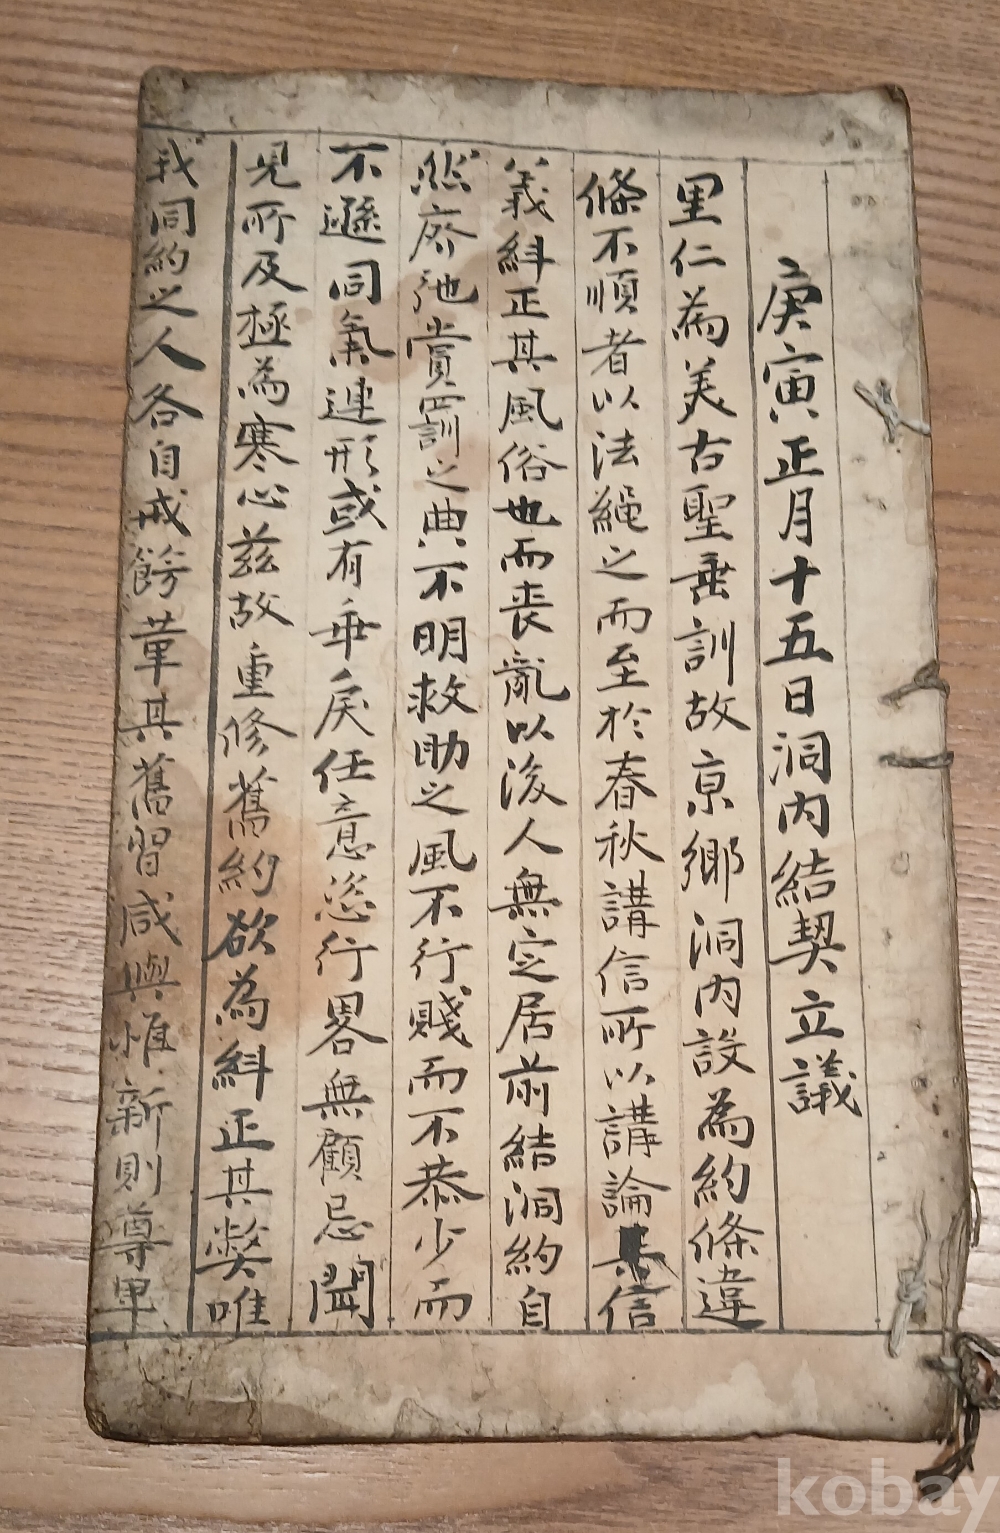 庚寅正月十五日洞内結契立議
里仁為美古聖垂訓故京鄉洞内設為約條違
條不順者以法繩之而至於春秋講信所以講論其信
義糾正其風俗也而喪亂以後人無定居前結洞約自
然廢弛賞罰之典不明救助之風不行賤而不恭少而
不遜同氣連形或有乖戾任意恣行畧無顧忌聞
見所及極為寒心玆故重修舊約欲為糾正其獘唯
我同約之人各自戒飭革其舊習咸與惟新則尊卑
kobay